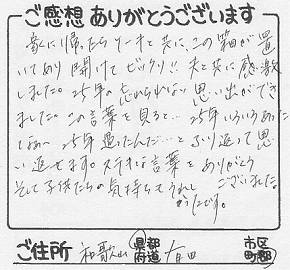 ご感想ありがとうございます
家に帰ったらケーキと共に、この箱が置
いてあり開けてビックリ!!夫と共に感激
しました。25年の忘れられない思い出ができ
ました。この言葉を見ると…25年いろいろあった
なぁ〜25年還ったんだ…とふり返って思
い返せます。ステキな言葉をありがとう
ございました。
そして子供たちの気持ちもうれし
かったです。
ご住所 和歌山 都道府県 有田 市区町郡